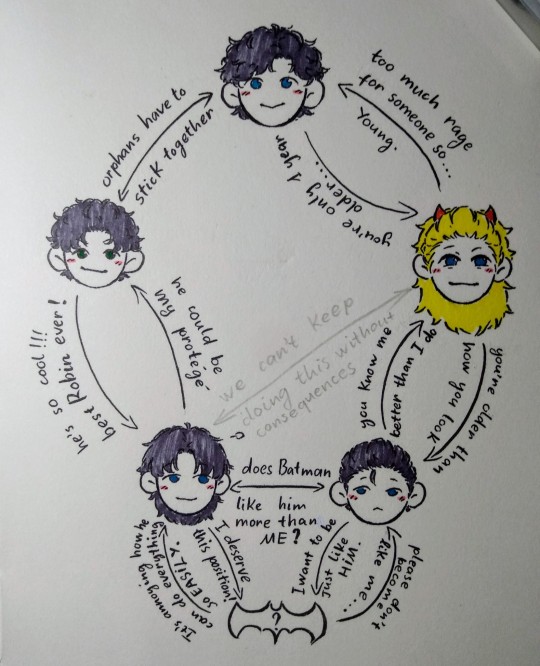 too much rage
for someone so...
young.
orphans have to
stick together
you're only 1 year
older...
he could be
my protégé
he's so cool!!!
best Robin ever!
we can't keep
doing this without
consequences
you know me
better than I do
you're older than
how you look
?
does Batman
like him
more than
ME?
It's annoying how he
can do everything
so EASILY
I deserve
this position!
I want to be
just like
HiM.
please don't
become
like me...
?